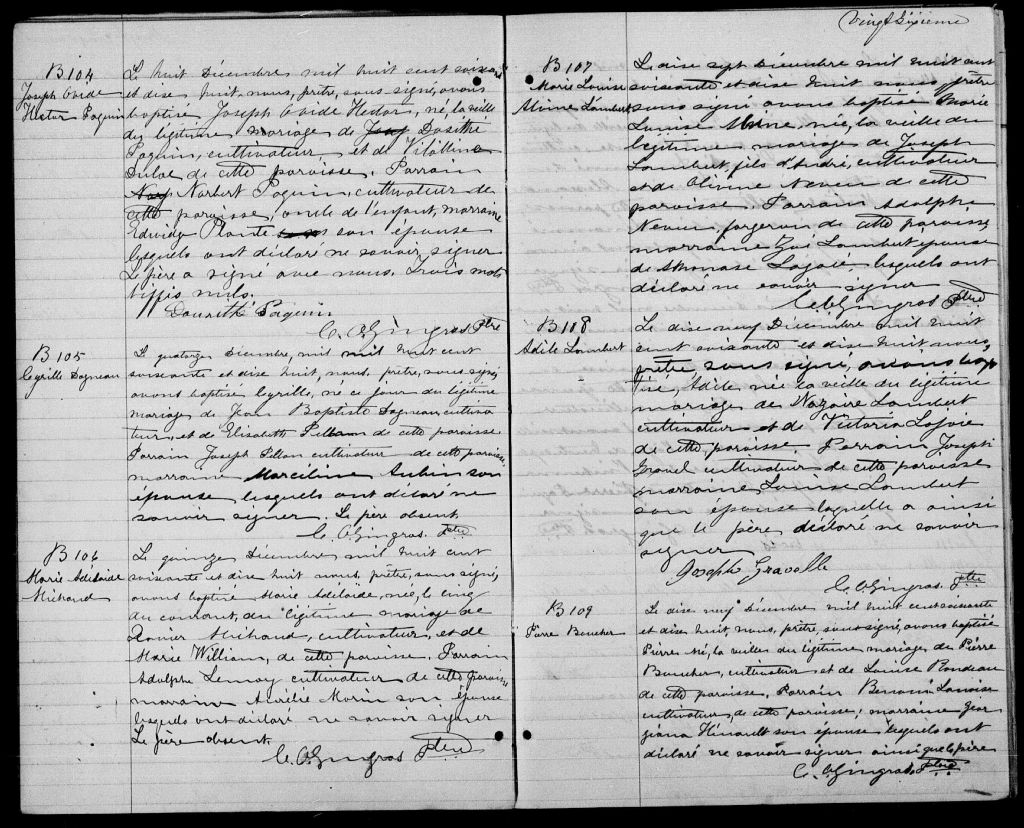 Vingtsixieme
B 104
Joseph Ovide
Hector Paquin
Le huit Décembre mil huit cent soixante
et dise huit, nous, prêtre, sous-signé, avons
baptisé Joseph Ovide Hector, né, la veille
du légitime mariage de Dosithé
Paquin, cultivateur, et de
de cette paroisse. Parrain
Norbert Paquin, cultivateur de
cette paroisse, oncle de l'enfant, marraine
Edwidge Plante son épouse
lesquels ont déclaré ne savoir signer
Le père a signé avec nous. Trois mots
biffés nuls.
Paquin
C. O. Gingras Ptre
B 105
Cyrille Dagneau
Le quatorze Décembre, mil huit cent
soixante et dise huit, nous, prêtre, sous-signé,
avons baptisé Cyrille, né ce jour du légitime
mariage de Jean Baptiste Dagneau, cultiva
teur, et de Elisabeth de cette paroisse
Parrain Joseph cultivateur de cette paroisse
marraine Marcéline Aubin son
épouse lesquels ont déclaré ne
savoir signer. Le père absent.
C. O. Gingras Ptre
B 106
Marie Adélaide
Michaud
Le quinze Décembre mil huit cent
soixante et dise huit nous, prêtre, sous-signé,
avons baptisé Marie Adelaide, née, le cinq
du courant, du légitime mariage de
Xavier Michaud, cultivateur, et de
Marie William, de cette paroisse. Parrain
Adolphe Lemay cultivateur de cette paroisse
marraine Aurélie Morin son épouse
lesquels ont déclaré ne savoir signer
Le père absent.
C. O. Gingras Ptre
B 107
Marie Louise
Lambert
Le dise sept Décembre mil huit cent
soixante et dise huit nous prêtre
sous signé avons baptisé Marie
Louise née, la veille du
légitime mariage de Joseph
Lambert, fils d'André, cultivateur
et de Olivine Neveu de cette
paroisse. Parrain Adolphe
Neveu, forgeron de cette paroisse
marraine Zoé Lambert épouse
de lesquels ont
déclaré ne savoir signer
C. O. Gingras Ptre
B 108
Adile Lambert
Le dise neuf Décembre mil huit
cent soixante et dise huit nous,
prêtre, sous, signé, avons bap
tisé, Adile, née la veille du légitime
mariage de Nazaire Lambert
cultivateur et de Victoria Lajoie
de cette paroisse. Parrain Joseph
Gravel cultivateur de cette paroisse
marraine Louise Lambert
son épouse laquelle a ainsi
que le père déclaré ne savoir
signer
Joseph Gravelle
C. O. Gingras Ptre
B 109
Pierre Boucher
Le dise neuf Décembre mil huit cent soixante
et dise huit, nous, prêtre, sous-signé, avons baptisé
Pierre né, la veille du légitime mariage de Pierre
Boucher, cultivateur et de Louise Rondeau
de cette paroisse. Parrain Benonie
cultivateur, de cette paroisse; marraine Geor
giana Hénault son épouse lesquels ont
déclaré ne savoir signer ainsi que le père
C. O. Gingras Ptre